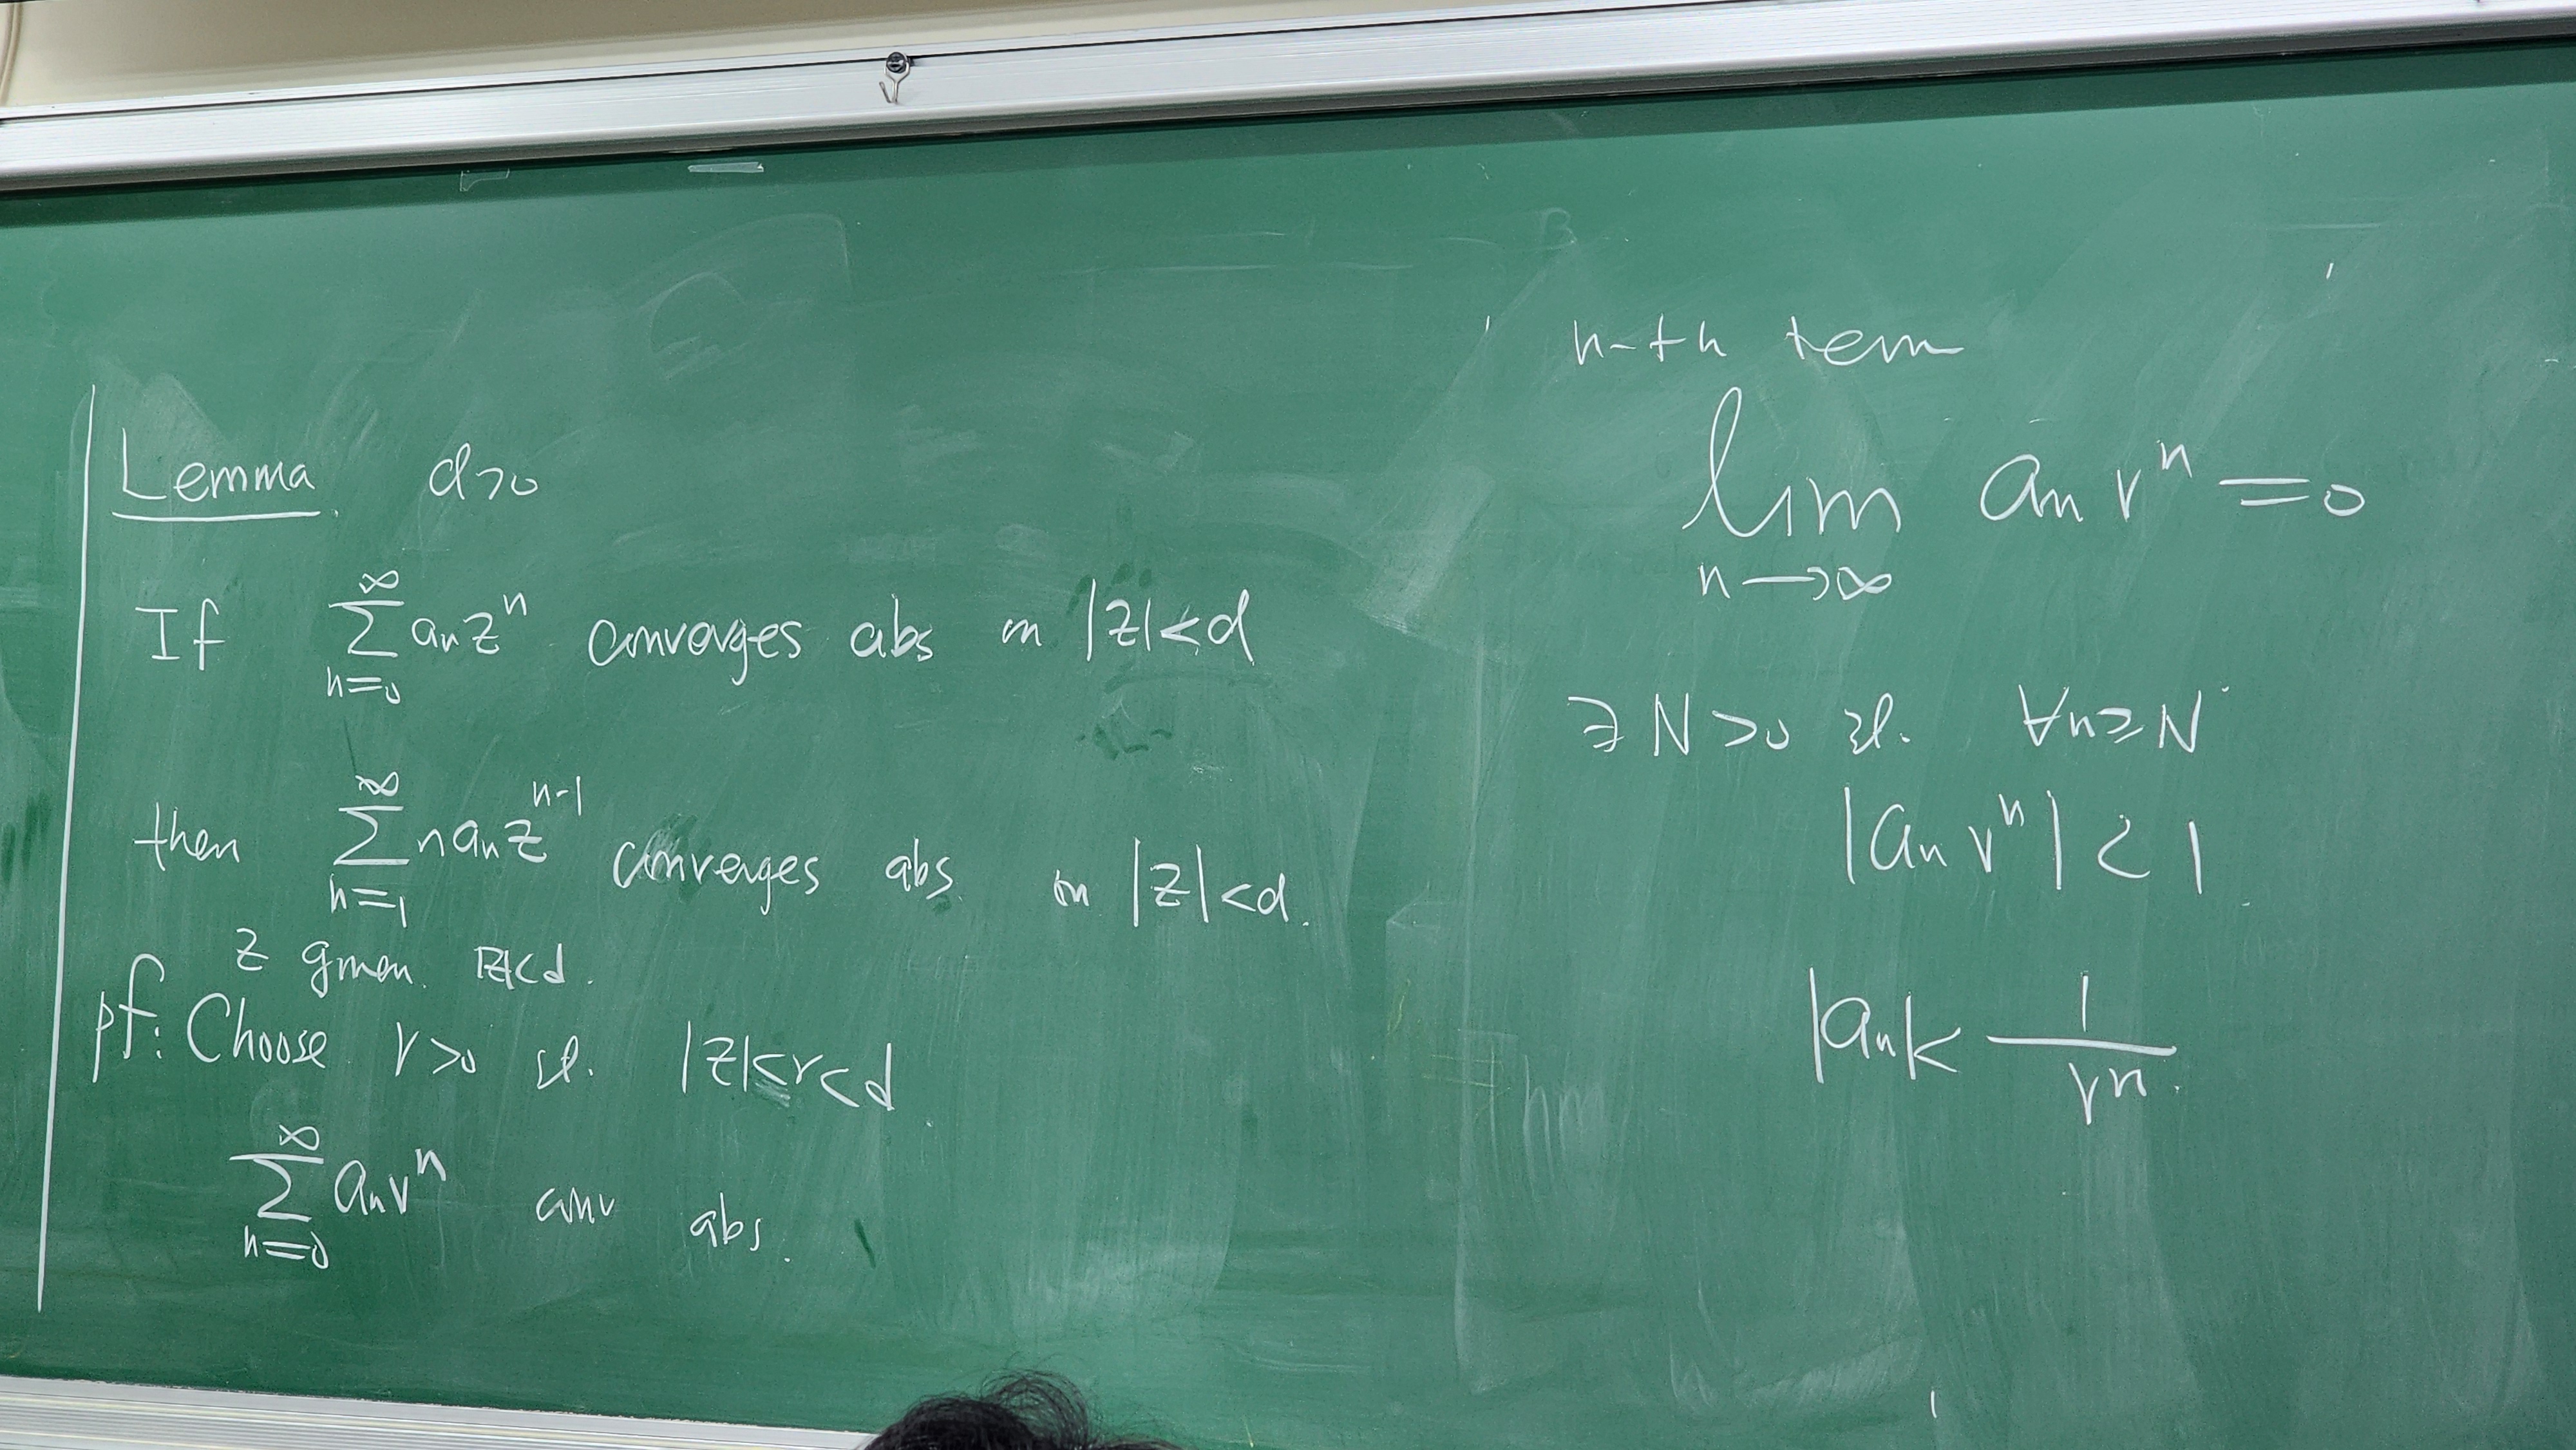 Lemma d>0
If ∑_{n=0}^{∞} aₙzⁿ converges abs on |z|<d
then ∑_{n=1}^{∞} naₙz^{n-1} converges abs. on |z|<d.
z given. |z|<d.
pf: Choose r>0 st. |z|<r<d
∑_{n=0}^{∞} aₙrⁿ conv abs.
n-th term
lim_{n→∞} aₙrⁿ=0
∃N>0 st. ∀n≥N
|aₙrⁿ|<1
|aₙ|< 1/rⁿ.